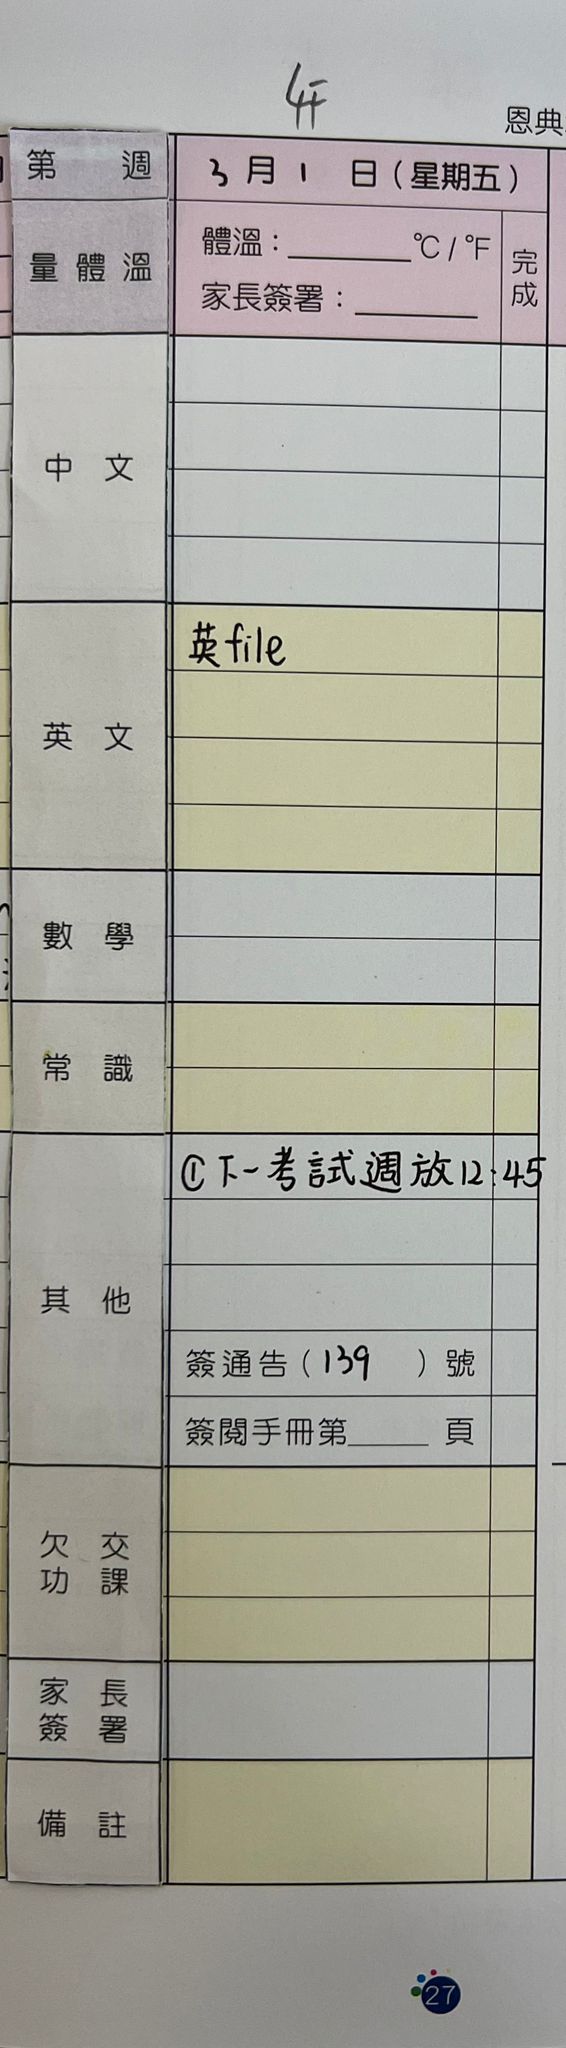 4F
恩典
第 週 3月1日(星期五)
量體溫
體溫:______°C/°F
家長簽署:______
完成
中文
英文
英file
數學
常識
其他
①下一考試週放12:45
簽通告(139)號
簽閱手冊第____頁
欠交功課
家長簽署
備註
27